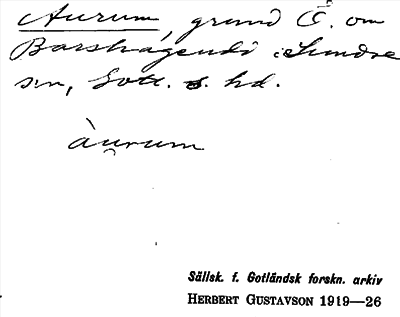 Aurum, grund Ö. om
Barshageudd i Sundre
sn, Gotl. s. hd.
àu̯rum
Sällsk. f. Gotländsk forskn. arkiv
HERBERT GUSTAVSON 1919—26